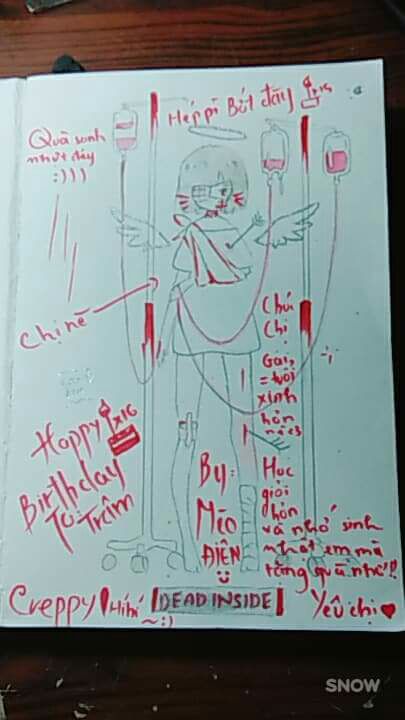 Héppi Bớt đây x16
Quà sinh
nhựt đây
:)))
Chị nè
Happy x16
Birthday
To: Trâm
By:
Mèo
ĐIÊN
Chúc
Chị
Gái,
= tuổi
xinh
hơn
Học
giỏi
hơn
và nhớ sinh
nhật em mà
tặng quà nhé!!
Yêu chị
Creppy! Hihi
~:)
DEAD INSIDE
SNOW